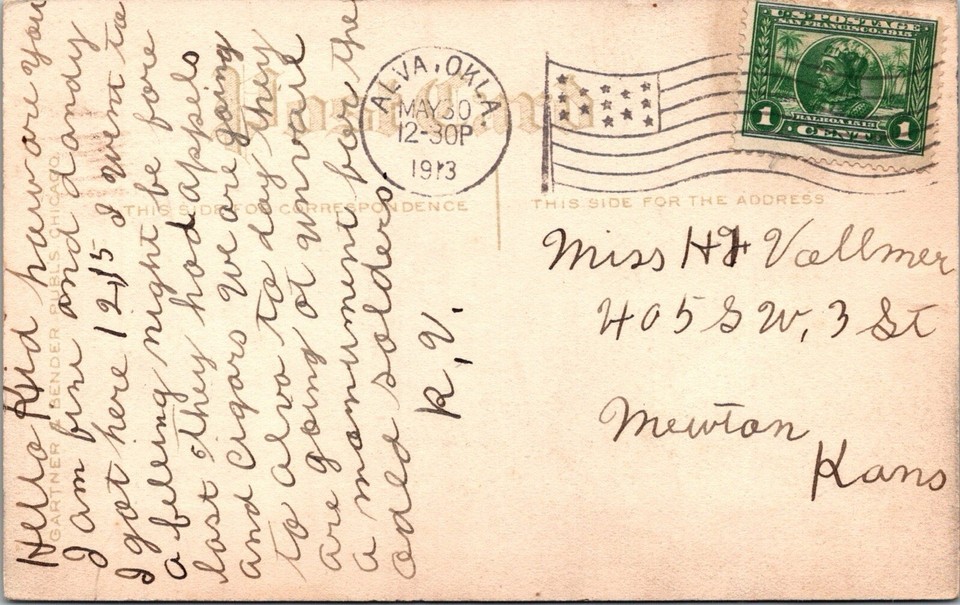 Hello Kid how are you
I am fine and dandy
I got here 1215 I went to
a felling night be fore
last they hod appels
and cigars We are going
to alva to day they
are going ot unvail
a monument for the
oald solders.
R. V.
Post Card
THIS SIDE FOR CORRESPONDENCE
THIS SIDE FOR THE ADDRESS
GARTNER & BENDER PUBLS. CHICAGO.
ALVA, OKLA.
MAY 30
12-30P
1913
U·S·POSTAGE
SAN FRANCISCO 1915
BALBOA 1513
1 CENT 1
Miss H F Vollmer
405 S W, 3 St
Newton
Kans